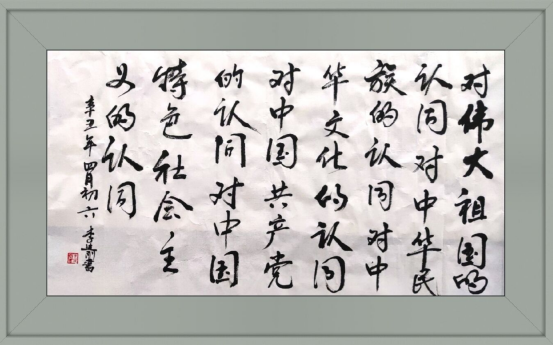 对伟大祖国的
认同对中华民
族的认同对中
华文化的认同
对中国共产党
的认同对中国
特色社会主
义的认同
辛丑年四月初六李书